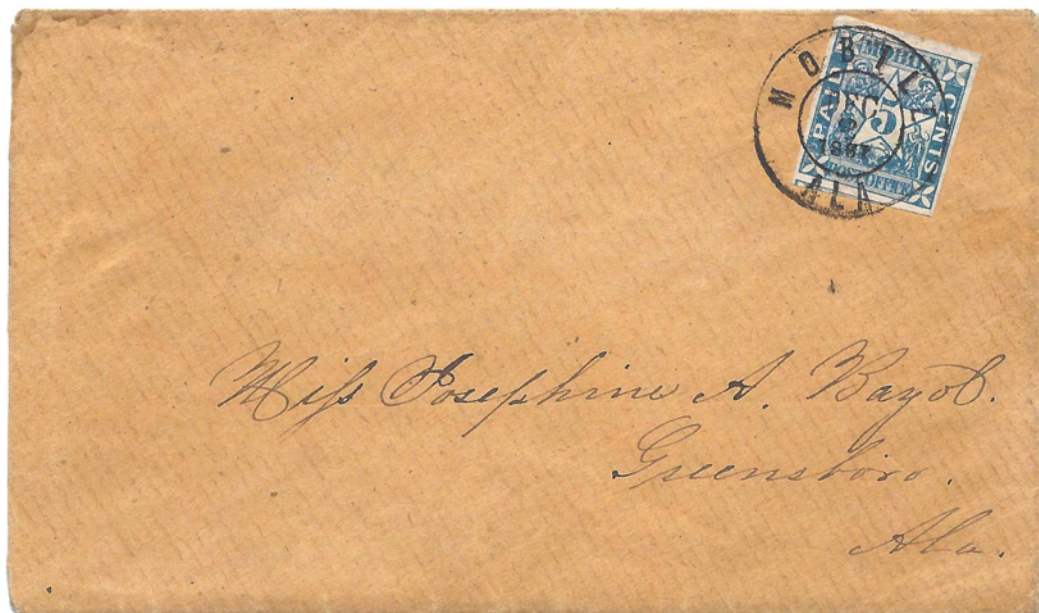 MOBILE
DEC
ALA
MOBILE
PAID
5
CENTS
POST OFFICE
Miſs Josephine A. Bayol.
Greensboro.
Ala.